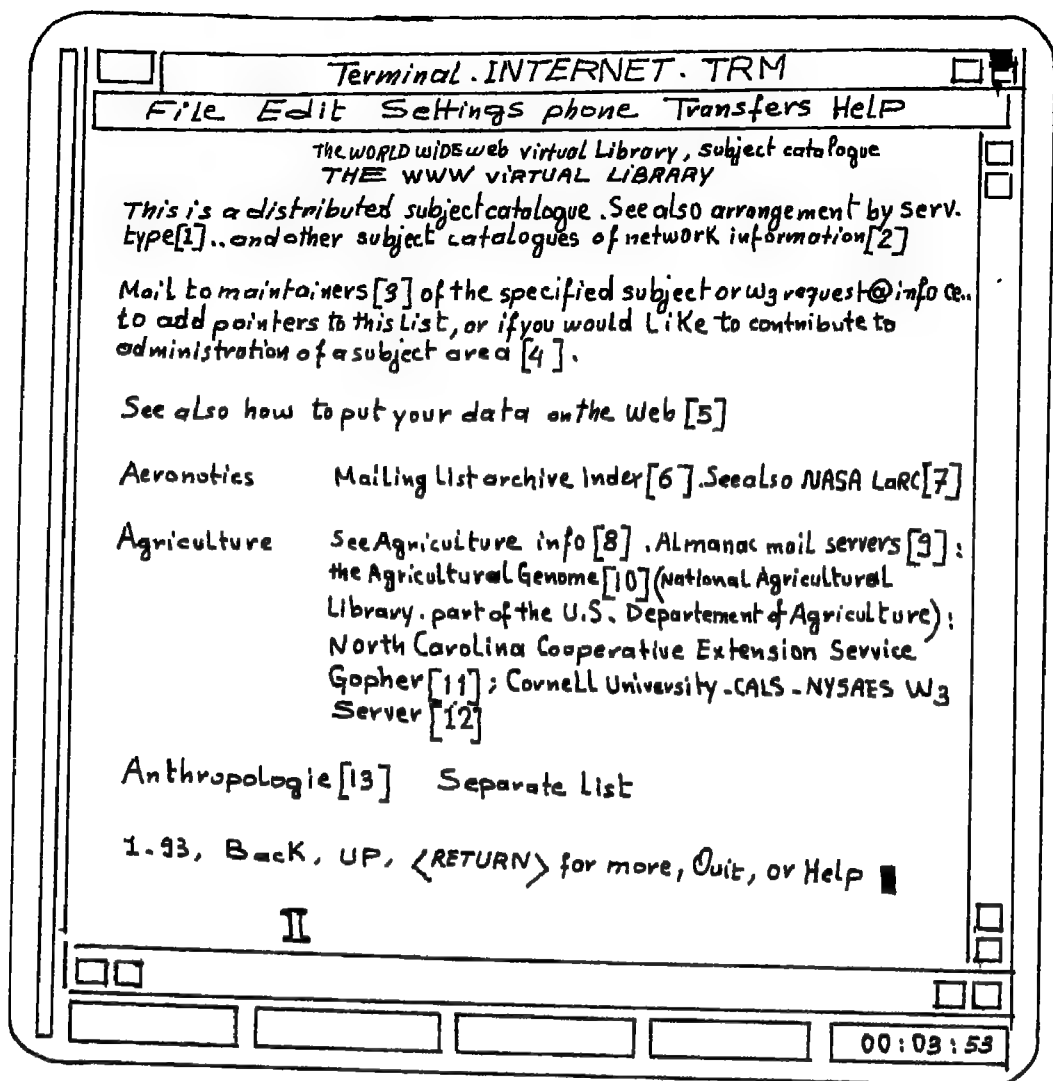 Terminal.INTERNET.TRM
File Edit Settings phone Transfers Help
The WORLD WIDE web virtual Library, subject catalogue
THE WWW VIRTUAL LIBRARY
This is a distributed subject catalogue. See also arrangement by serv.
type[1]..and other subject catalogues of network information[2]
Mail to maintainers[3] of the specified subject or w3 request@info ce..
to add pointers to this list, or if you would Like to contribute to
administration of a subject area [4].
See also how to put your data on the Web [5]
Aeronotics Mailing List archive Inder[6]. See also NASA LaRC[7]
Agriculture See Agriculture info [8]. Almanac mail servers [9]:
the Agricultural Genome[10](National Agricultural
Library. part of the U.S. Departement of Agriculture):
North Carolina Cooperative Extension Service
Gopher[11]; Cornell University-CALS-NYSAES W3
Server[12]
Anthropologie[13] Separate list
1.93, Back, UP, <RETURN> for more, Quit, or Help
00:03:53